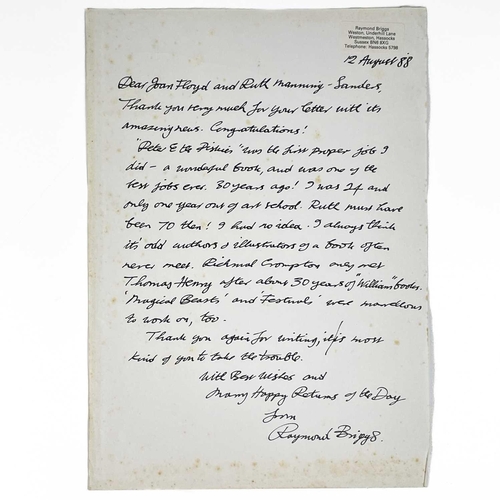 Raymond Briggs
Weston, Underhill Lane
Westmeston, Hassocks
Sussex BN6 8XG
Telephone: Hassocks 5798
12 August '88
Dear Joan Floyd and Ruth Manning-Sanders,
Thank you very much for your letter with its
amazing news. Congratulations!
"Peter & the Piskies" was the first proper job I
did – a wonderful book, and was one of the
best jobs ever. 30 years ago! I was 24 and
only one year out of art school. Ruth must have
been 70 then! I had no idea. I always think
it's odd authors & illustrators of a book often
never meet. Richmal Crompton only met
Thomas Henry after about 30 years of "William" books.
'Magical Beasts' and Festivals' were marvellous
to work on, too.
Thank you again for writing, it is most
kind of you to take the trouble.
With Best Wishes and
Many Happy Returns of the Day
from
Raymond Briggs.